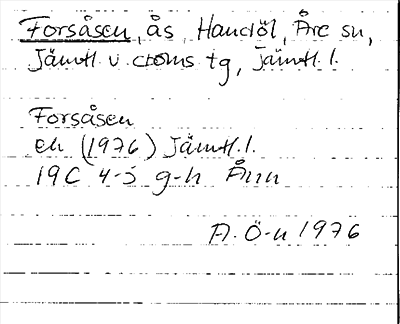 Forsåsen, ås, Handöl, Åre sn,
Jämtl. v. doms tg, Jämtl. l.
Forsåsen
ek (1976) Jämtl. l.
19C 4-5 g-h Ånn
A. Ö-n 1976